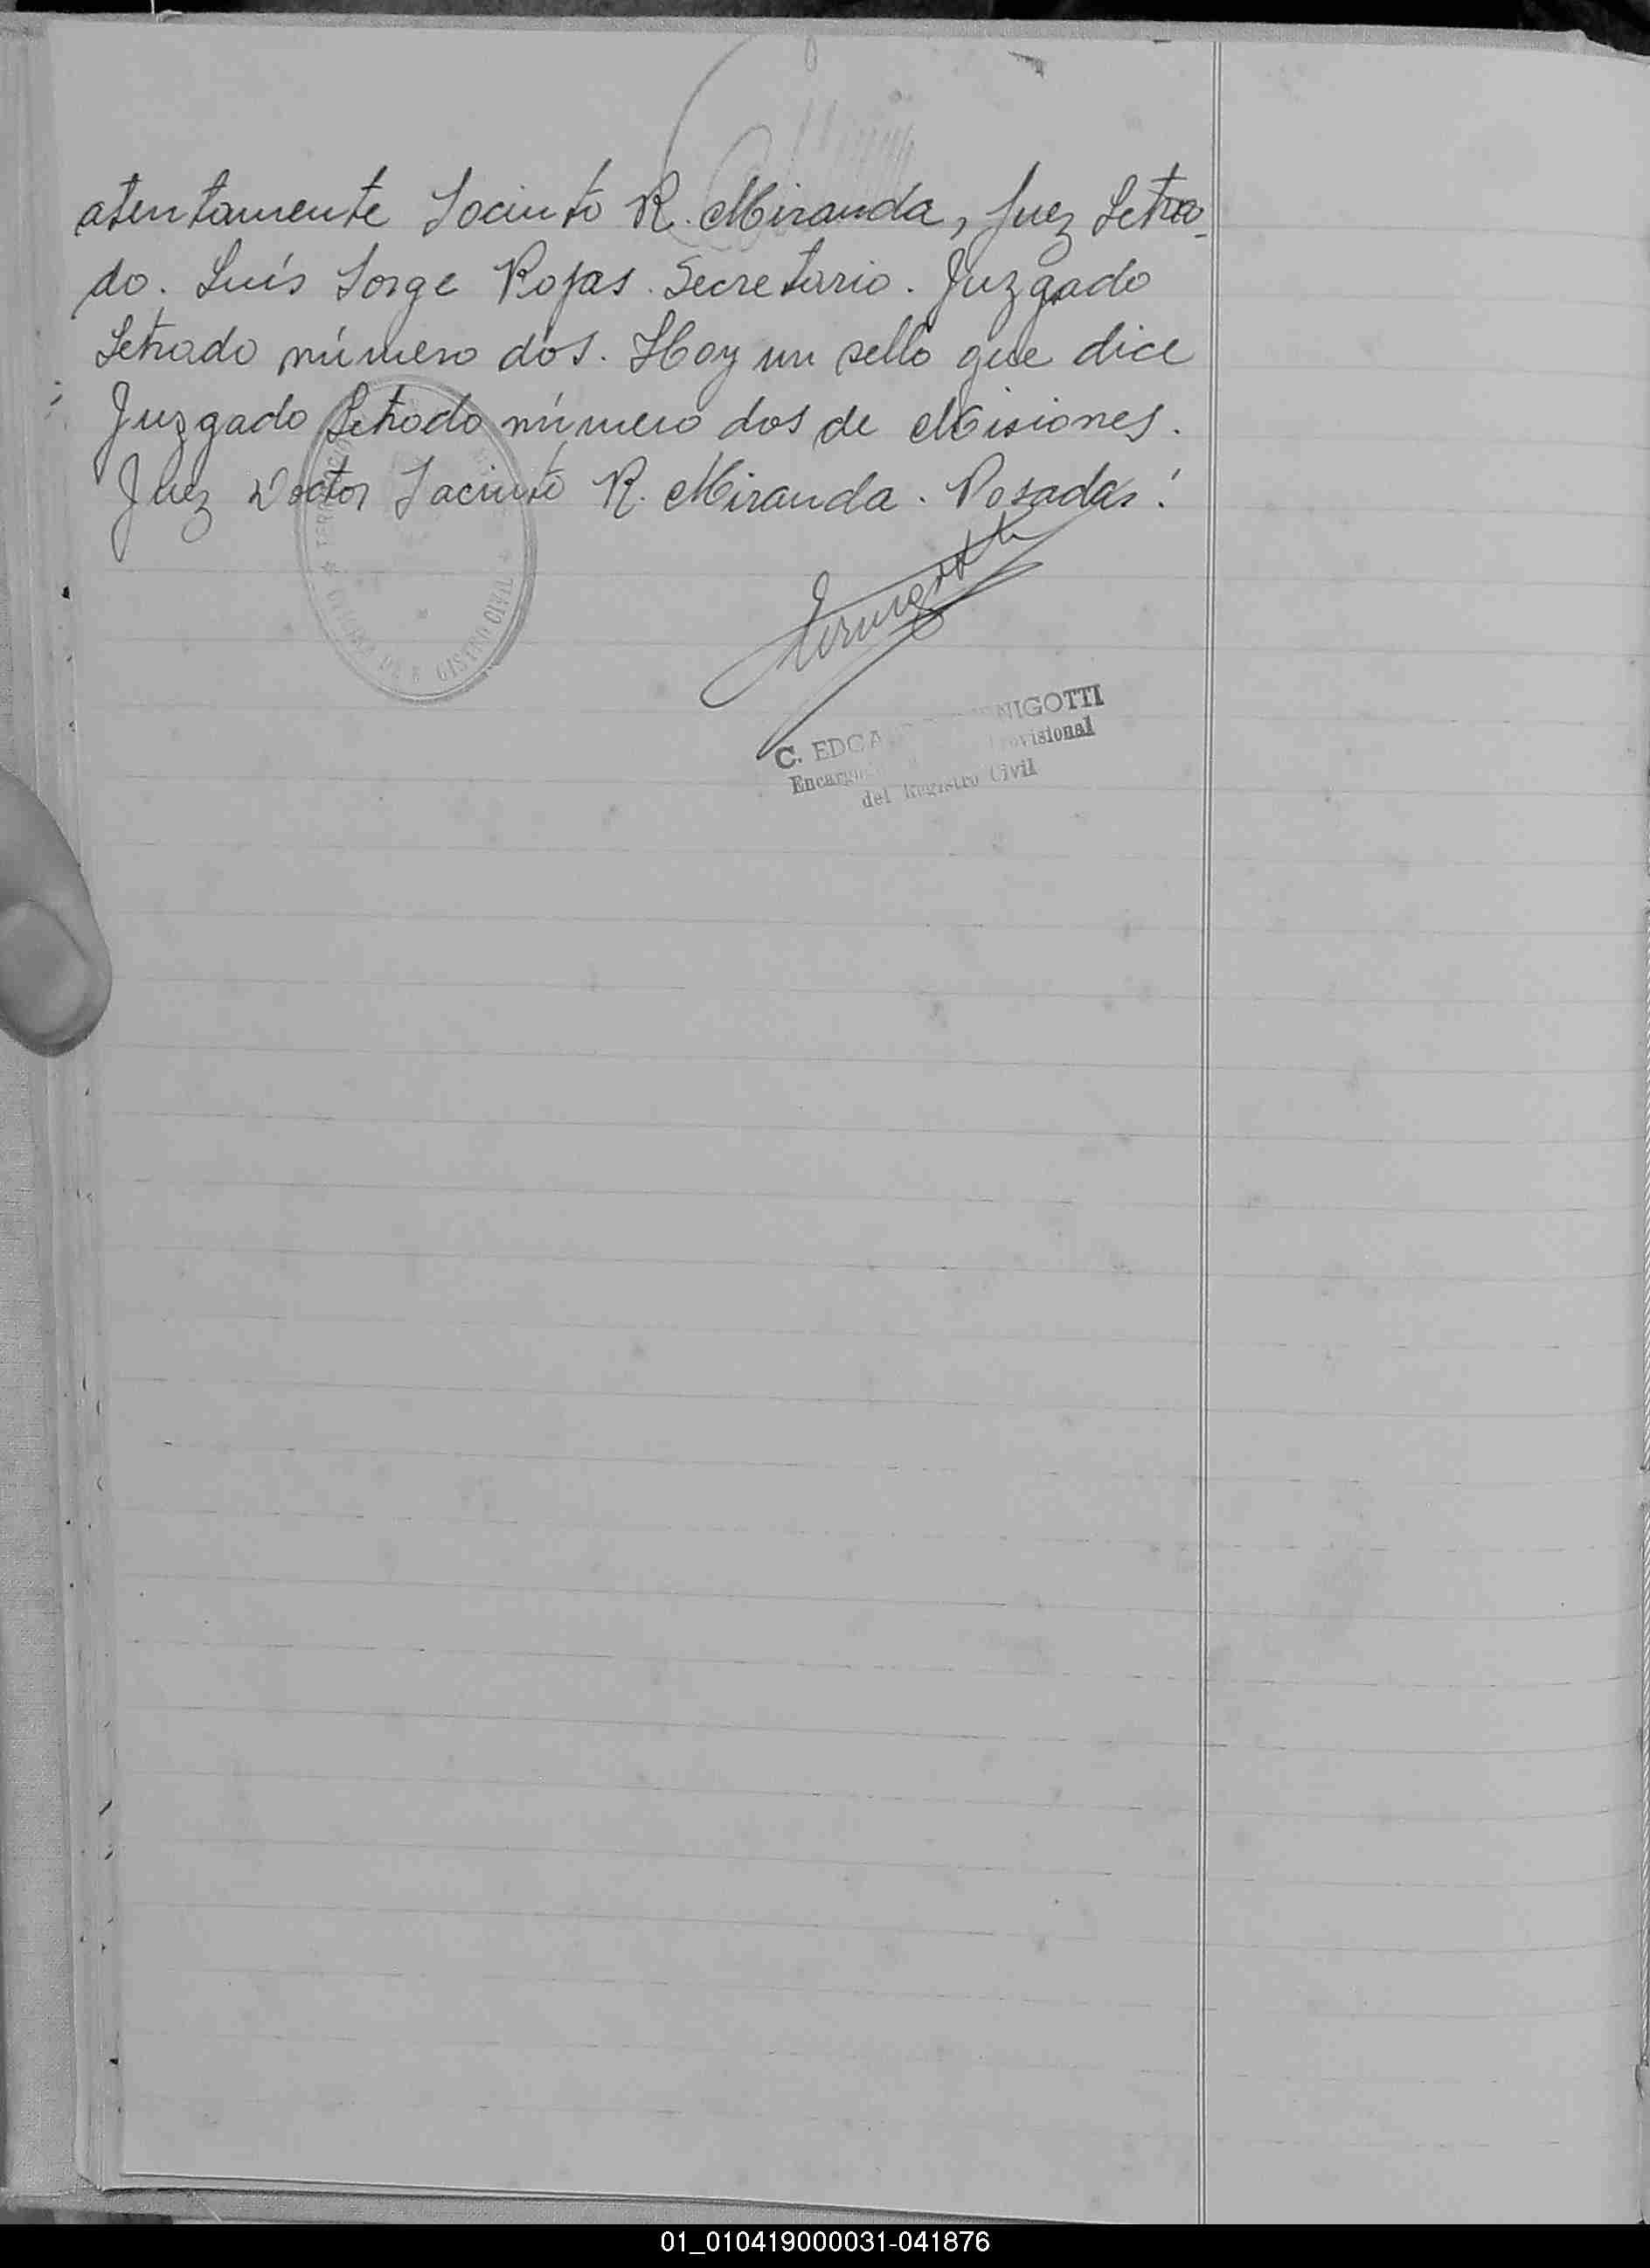 atentamente Jacinto R. Miranda, Juez Letra-
do. Luís Jorge Rojas. Secretario. Juzgado
Letrado número dos. Hay un sello que dice
Juzgado Letrado número dos de Misiones.
Juez Doctor Jacinto R. Miranda. Posadas.
GISTRO CIVIL
C. EDGA NIGOTTI
Provisional
del Registro Civil
01_010419000031-041876